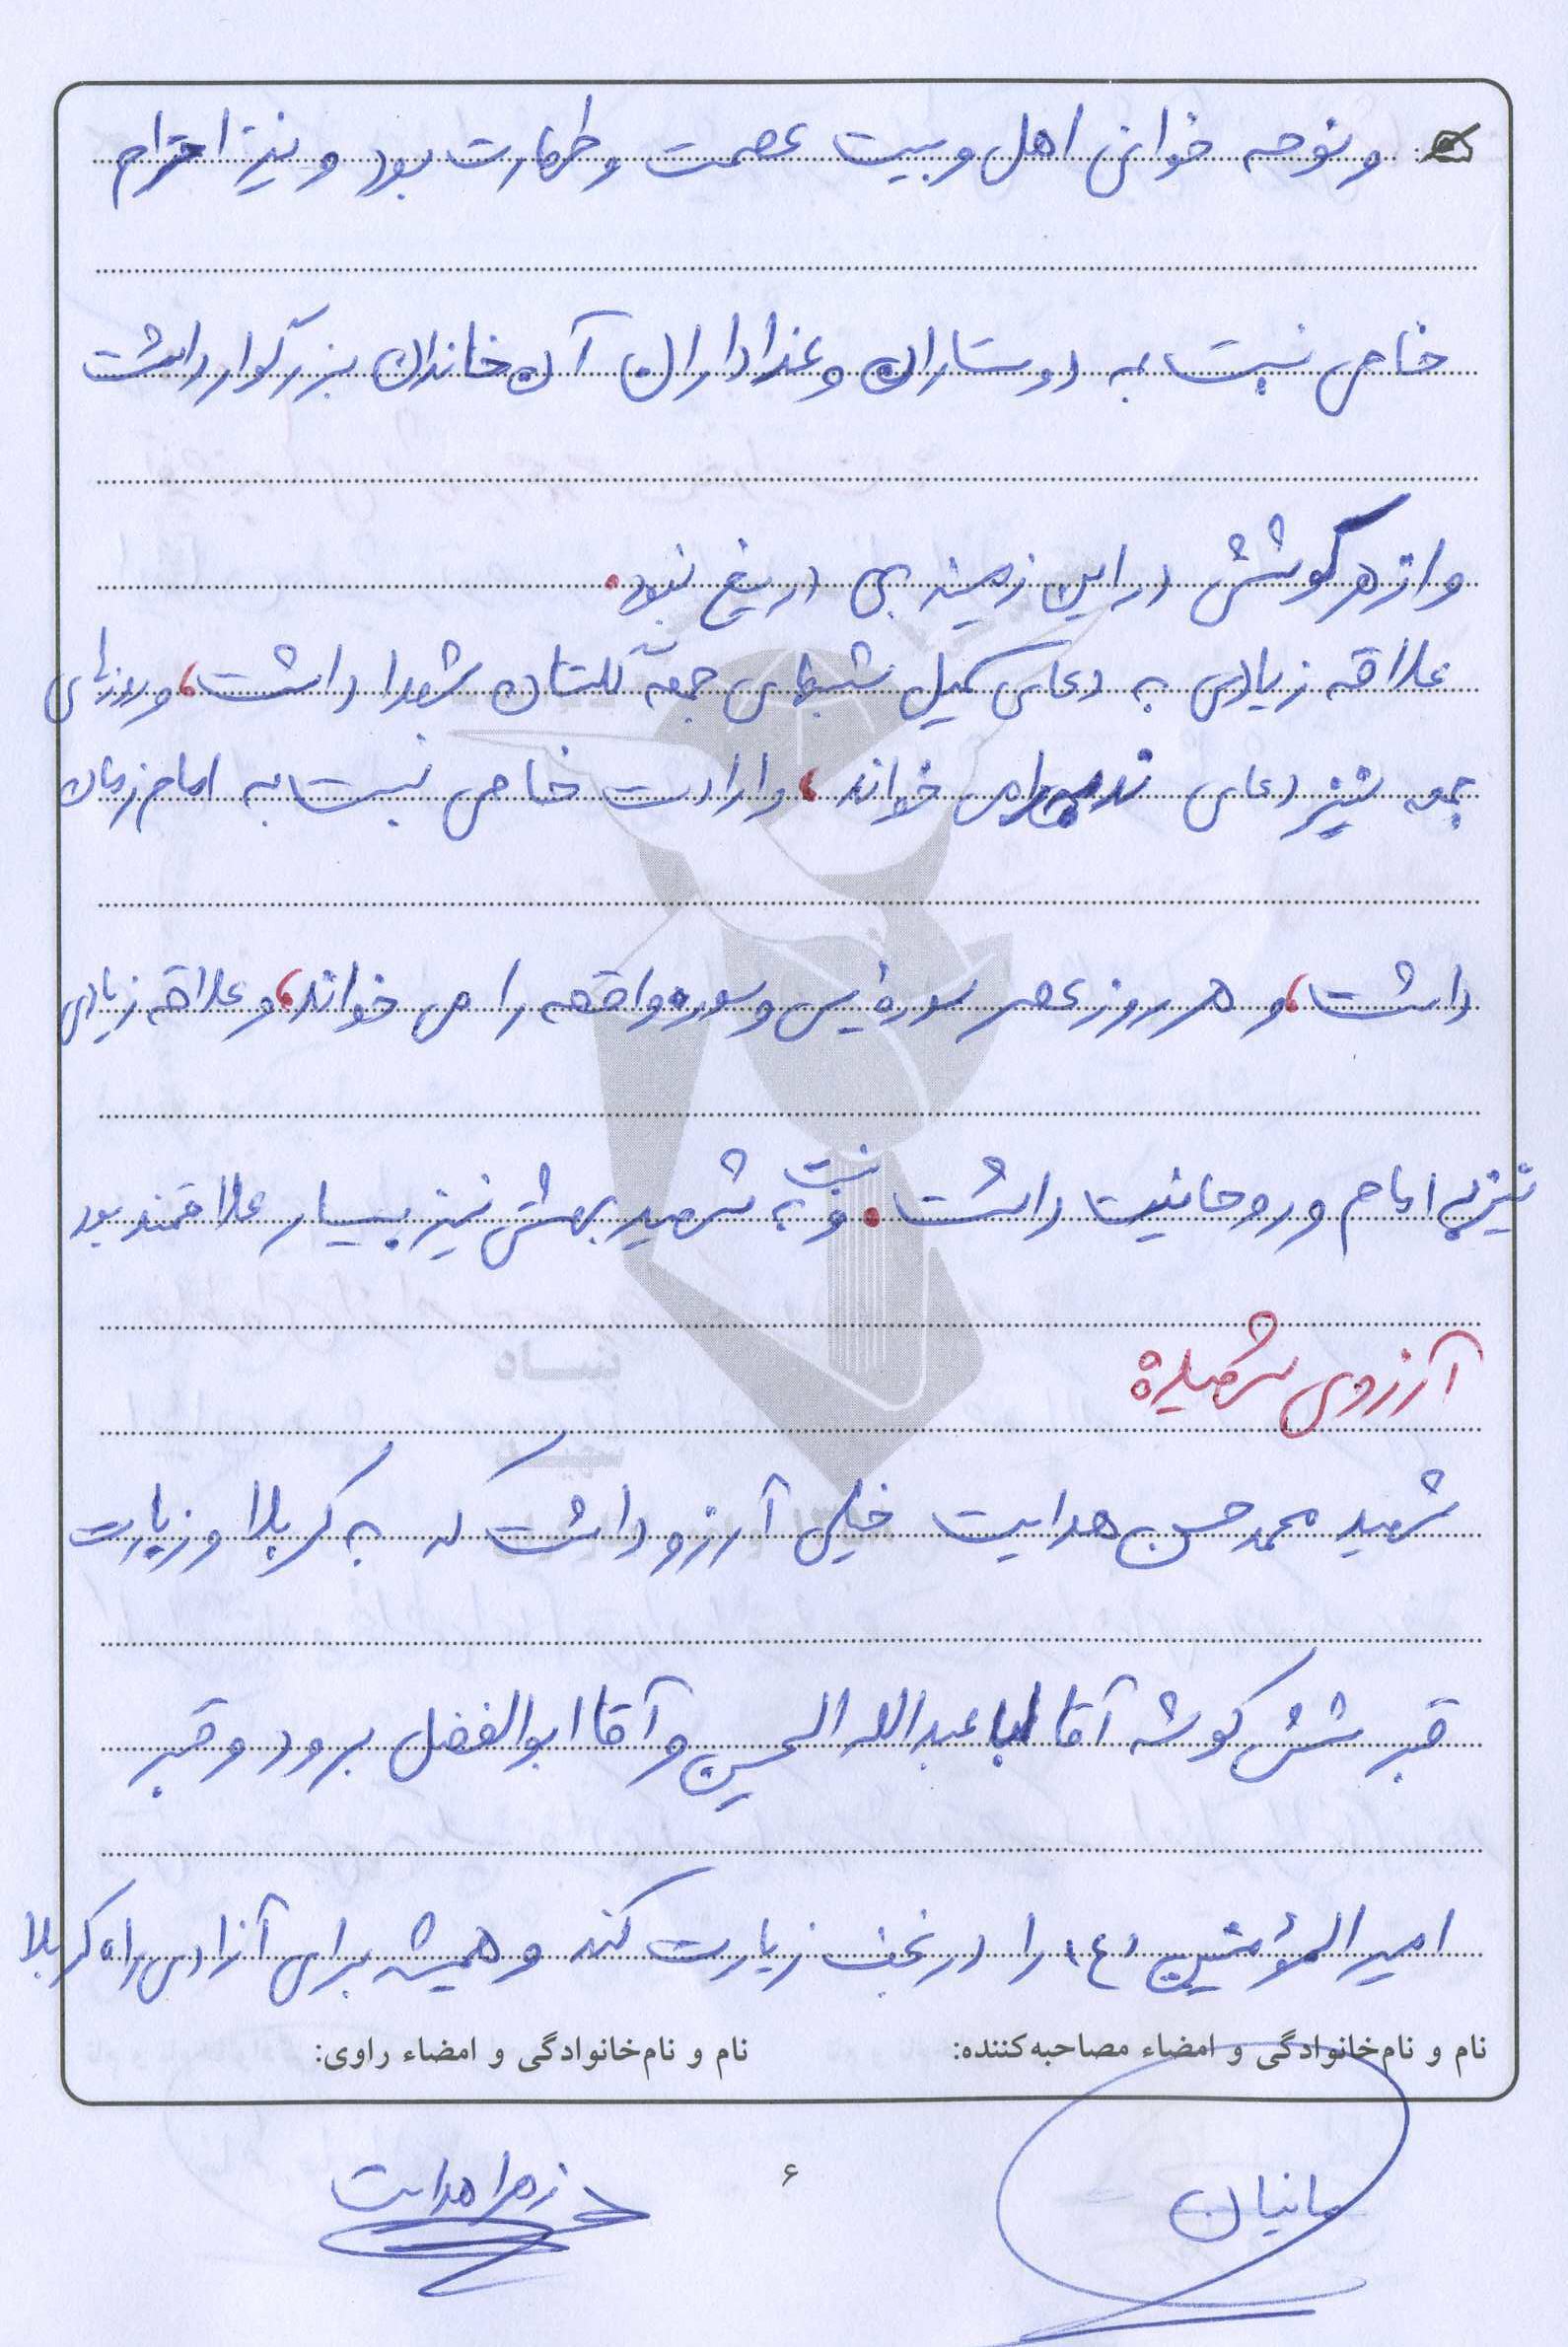 ونوحه خوانی اهل وبیت عصمت وطهارت بود و نیز احترام
خاصی نسبت به دوستاران وعزاداران آن خاندان بزرگوار داشت
و از هر کوشش در این زمینه بی دریغ نبود.
علاقه زیادی به دعای کمیل شبهای جمعه گلستان شهدا داشت، وروزهای
جمعه نیز دعای ندبه را می خواند، وارادت خاصی نسبت به امام زمان
داشت، و هر روز عصر سوره یس و سوره واقعه را می خواند، و علاقه زیادی
نیز به امام و روحانیت داشت. و نسبت به شهید بهشتی نیز بسیار علاقمند بود
آرزوی شهید:
شهید محمدحسن هدایت خیلی آرزو داشت که به کربلا و زیارت
قبر شش گوشه آقا اباعبدالله الحسین و آقا ابوالفضل برود و قبر
امیرالمؤمنین (ع) را در نجف زیارت کند و همیشه برای آزادی راه کربلا
نام و نام‌خانوادگی و امضاء مصاحبه‌کننده: نام و نام‌خانوادگی و امضاء راوی:
مانیان ۶ زهرا هدایت
بنیاد
شهید